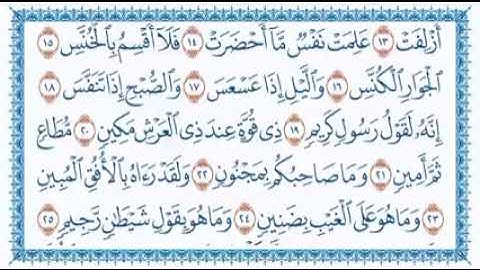 أُزْلِفَتْ ١٣ عَلِمَتْ نَفْسٌ مَّآ أَحْضَرَتْ ١٤ فَلَآ أُقْسِمُ بِالْخُنَّسِ ١٥
الْجَوَارِ الْكُنَّسِ ١٦ وَالَّيْلِ إِذَا عَسْعَسَ ١٧ وَالصُّبْحِ إِذَا تَنَفَّسَ ١٨
إِنَّهُ لَقَوْلُ رَسُولٍ كَرِيمٍ ١٩ ذِى قُوَّةٍ عِندَ ذِى الْعَرْشِ مَكِينٍ ٢٠ مُّطَاعٍ
ثَمَّ أَمِينٍ ٢١ وَمَا صَاحِبُكُم بِمَجْنُونٍ ٢٢ وَلَقَدْ رَءَاهُ بِالْأُفُقِ الْمُبِينِ
٢٣ وَمَا هُوَ عَلَى الْغَيْبِ بِضَنِينٍ ٢٤ وَمَا هُوَ بِقَوْلِ شَيْطَٰنٍ رَّجِيمٍ ٢٥